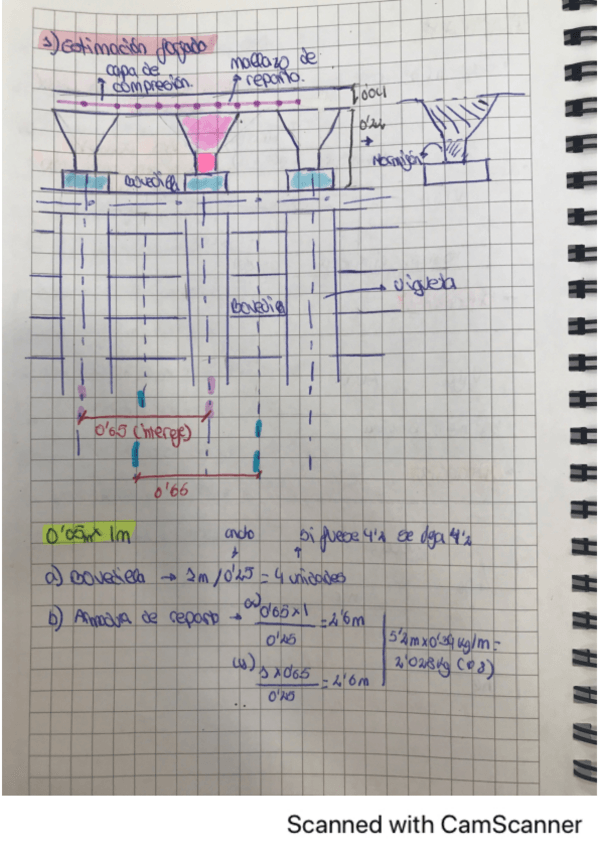 3) Estimación forjado
capa de compresión.
mallazo de reparto.
0'24
Hormigón
Bovedilla
Bovedilla
vigueta
0'65 (intereje)
0'66
0'65m x 1m
ancho
si fuese 4'2 se deja 4'2
a) Bovedilla → 1m / 0'25 = 4 unidades
b) Armadura de reparto → a) 0'65 x 1 / 0'25 = 2'6m
1 x 0'65 / 0'25 = 2'6m
5'2m x 0'39 kg/m =
2'028 kg
Scanned with CamScanner